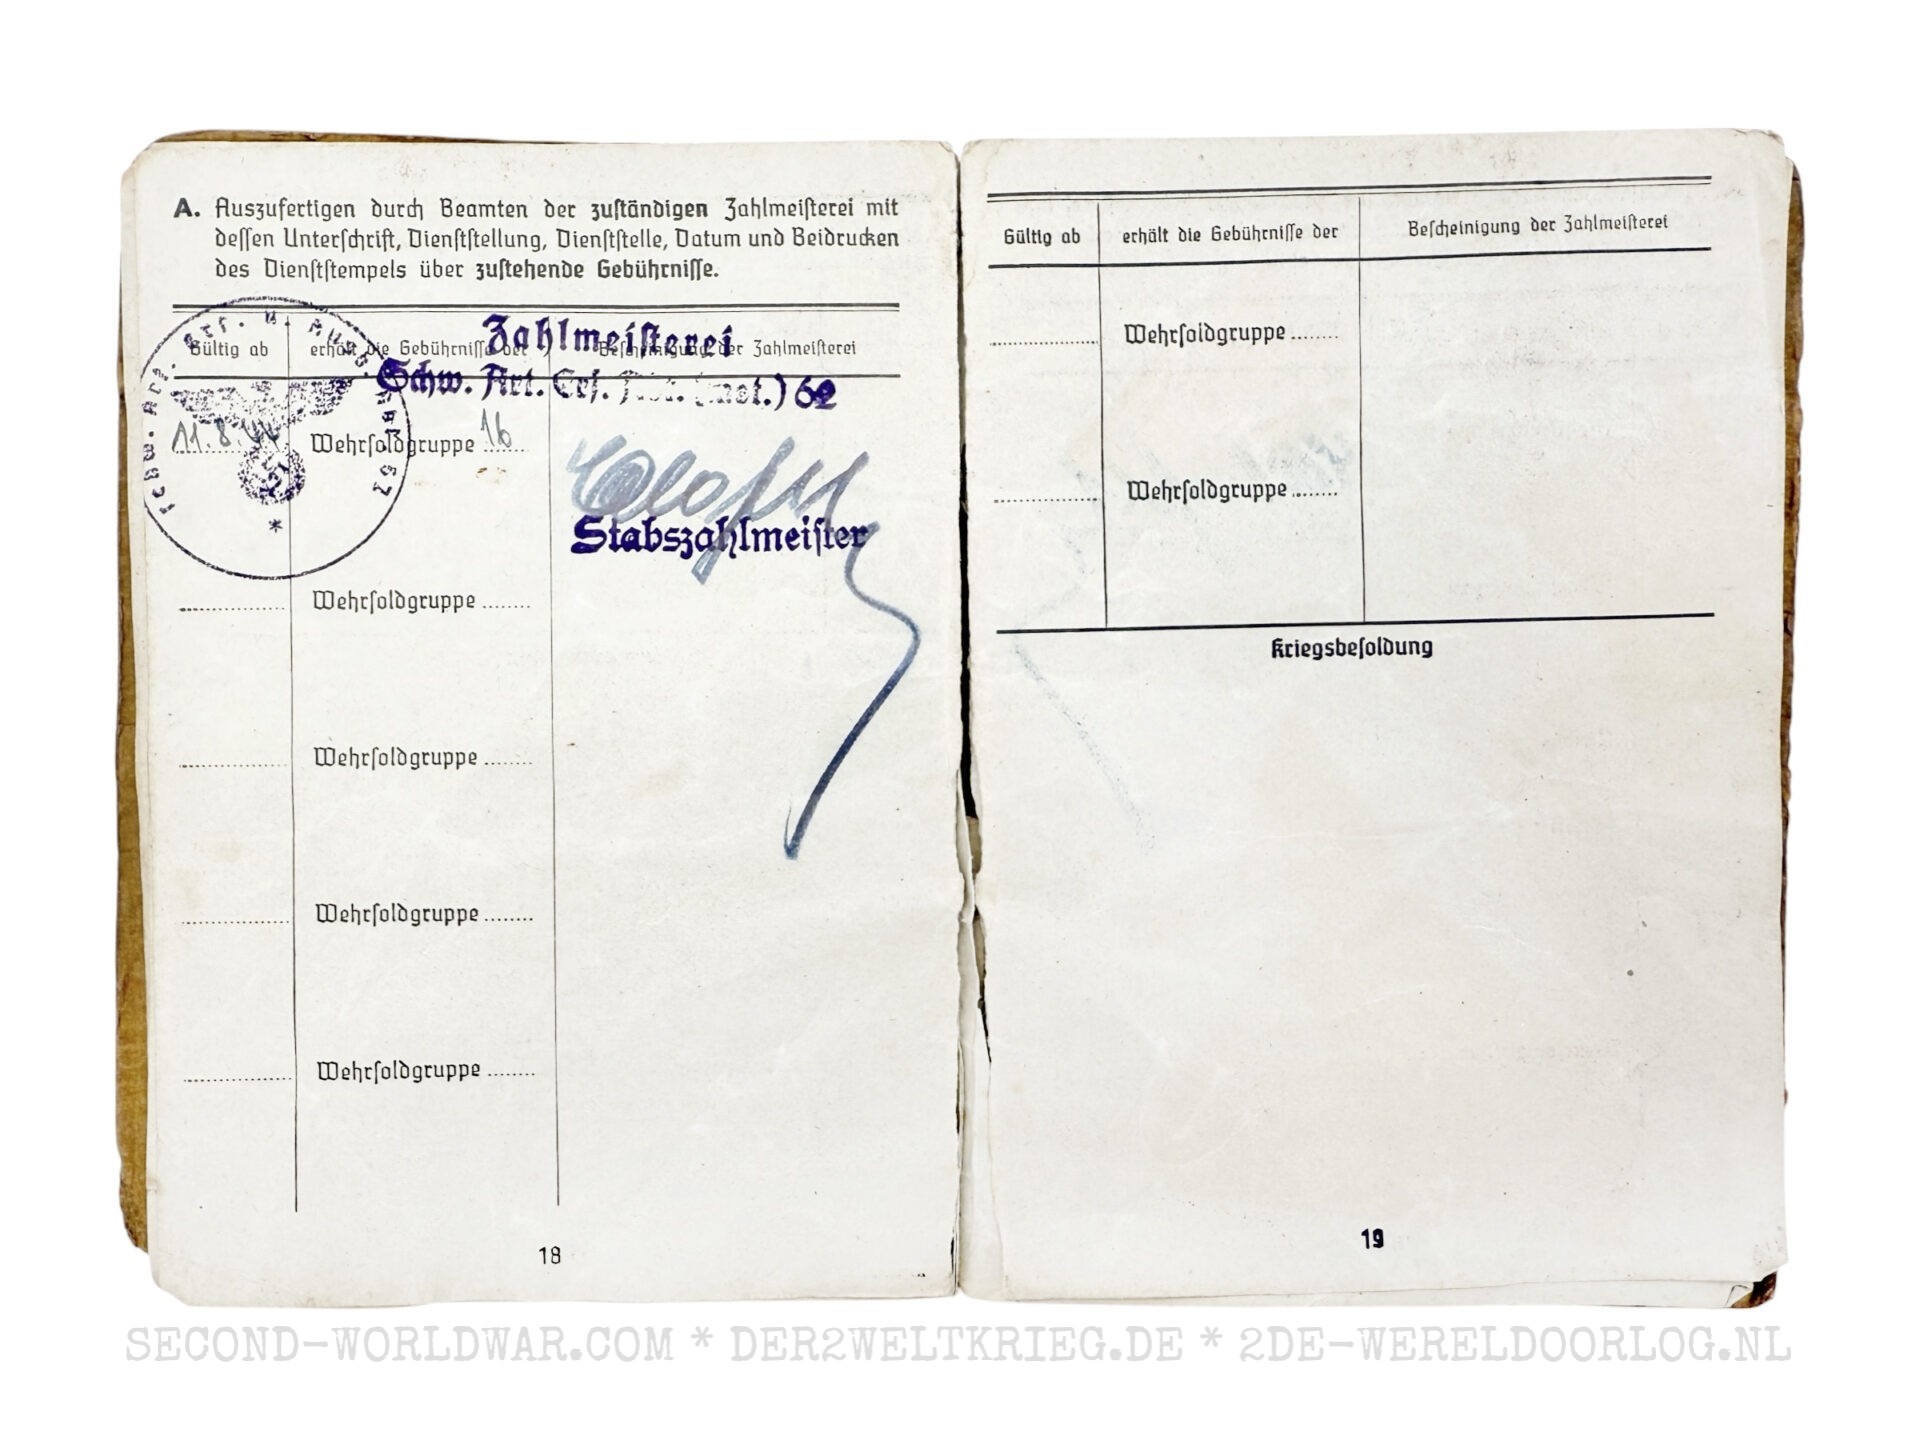 A. Auszufertigen durch Beamten der zuständigen Zahlmeisterei mit
dessen Unterschrift, Dienststellung, Dienststelle, Datum und Beidrucken
des Dienststempels über zustehende Gebührnisse.
Zahlmeisterei
Gültig ab erhält die Gebührnisse der Bescheinigung der Zahlmeisterei
Schw. Art. Ers. (mot.) 62
Schw. Art. Ers. u. Ausb.
11.8.44 Wehrsoldgruppe 16
Stabszahlmeister
*
Wehrsoldgruppe
Wehrsoldgruppe
Wehrsoldgruppe
Wehrsoldgruppe
18
Gültig ab erhält die Gebührnisse der Bescheinigung der Zahlmeisterei
Wehrsoldgruppe
Wehrsoldgruppe
Kriegsbesoldung
19
SECOND-WORLDWAR.COM * DER2WELTKRIEG.DE * 2DE-WERELDOORLOG.NL